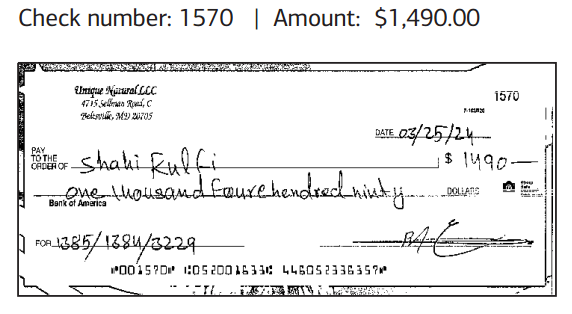 Check number: 1570 | Amount: $1,490.00
Unique Natural LLC
4715 Sellman Road, C
Beltsville, MD 20705
1570
DATE 03/25/24
PAY TO THE ORDER OF Shahi Kulfi $ 1490—
one thousand Fourehendred ninty DOLLARS
Bank of America
FOR 1385/1384/3229
⑈001570⑈ ⑆052001633⑆ 446052336357⑈